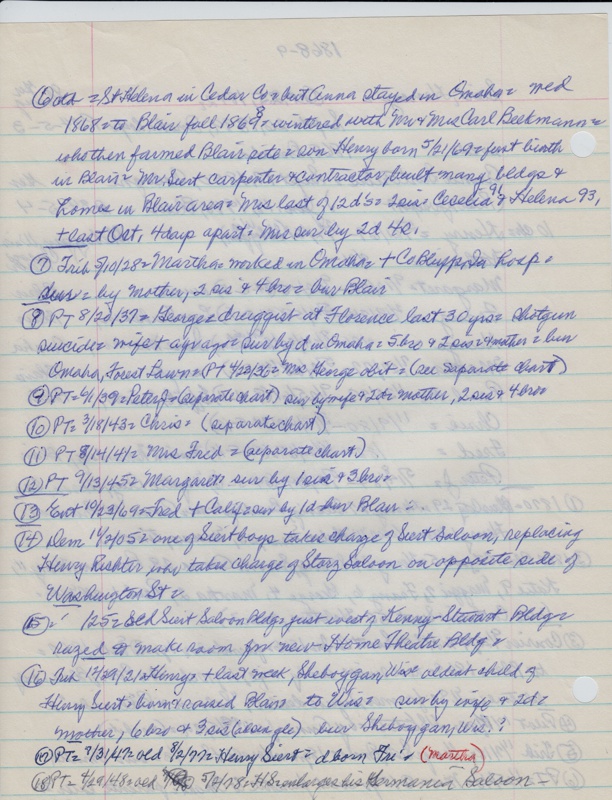 ⑥ctd = St Helena in Cedar Co = but Anna stayed in Omaha = med
1868 = to Blair fall 1868 = wintered with Mr & Mrs Carl Beckmann =
who then farmed Blair site = son Henry born 5/2/69 = first birth
in Blair = Mr. Siert carpenter & contractor, built many bldgs &
homes in Blair area = Mrs last of 12 d's = 2 sis = Cecelia 96 & Helena 93,
+ last Oct, 4 days apart = Mrs sur by 2d 4s.
⑦ Trib 5/10/28 = Martha = worked in Omaha = + Co Bluffs hosp =
sur = by mother, 2 sis & 4 bro = bur Blair
⑧ PT 8/20/37 = George = druggist at Florence last 30 yrs = shotgun
suicide = wife + a yr ago = sur by d in Omaha = 5 bro & 2 sis & mother = bur
Omaha, Forest Lawn = (PT 4/23/36 = Mrs George obit = (see separate chart)
⑨ PT = 9/1/39 = Peter J = (separate chart) sur by wife & 2d = mother, 2 sis & 4 bro =
⑩ PT = 3/18/43 = Chris = (separate chart)
⑪ PT = 8/14/41 = Mrs Fred = (separate chart)
⑫ PT 9/13/45 = Margaret = sur by 1 sis & 3 bro =
⑬ Ent 10/23/69 = Fred + Calif = sur by 1d = bur Blair =
⑭ Dem 11/2/05 = one of Siert boys takes charge of Siert Saloon, replacing
Henry Richter, who takes charge of Storz Saloon on opposite side of
Washington St =
⑮ = 1/25 = Old Siert Saloon Bldg = just west of Kenny-Stewart Bldg =
razed to make room for new Home Theatre Bldg =
⑯ Trib 12/29/21 = Henry = + last week, Sheboygan, Wis = oldest child of
Henry Siert = born & raised Blair to Wis = sur by wife & 2d =
mother, 6 bro & 3 sis (single) bur Sheboygan, Wis.?
⑰ PT = 7/3/47 = old 8/2/77 = Henry Siert = d born Fri = (Martha)
⑱ PT = 4/29/48 = old 5/2/78 = H S enlarges his Hermania Saloon =